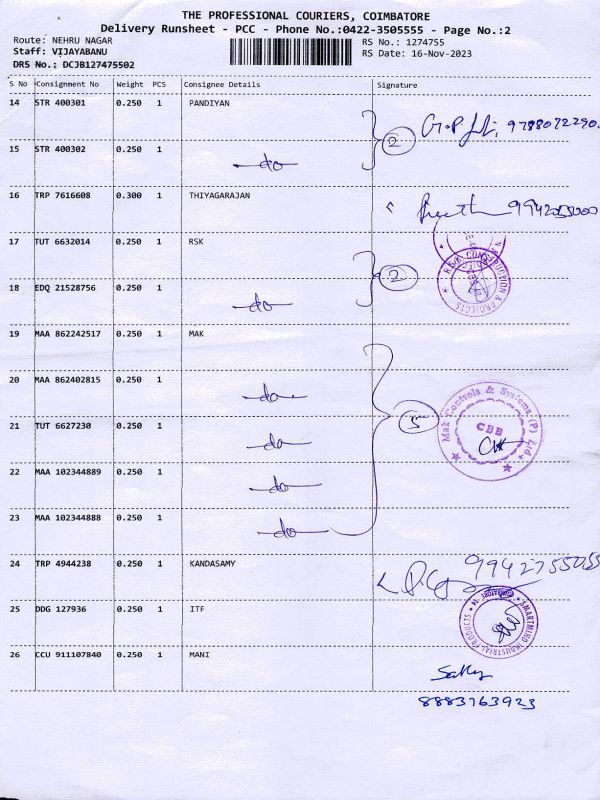 THE PROFESSIONAL COURIERS, COIMBATORE
Delivery Runsheet - PCC - Phone No.:0422-3505555 - Page No.:2
Route: NEHRU NAGAR
RS No.: 1274755
Staff: VIJAYABANU
RS Date: 16-Nov-2023
DRS No.: DCJB127475502
S No Consignment No Weight PCS Consignee Details Signature
14 STR 400301 0.250 1 PANDIYAN
2
15 STR 400302 0.250 1 do
16 TRP 7616608 0.300 1 THIYAGARAJAN
17 TUT 6632014 0.250 1 RSK
2 RSK CONSTRUCTION & PROJECTS
18 EDQ 21528756 0.250 1 do
19 MAA 862242517 0.250 1 MAK
20 MAA 862402815 0.250 1 do
5 Mak Controls & Systems (P) Ltd. CBE
21 TUT 6627230 0.250 1 do
22 MAA 102344889 0.250 1 do
23 MAA 102344888 0.250 1 do
24 TRP 4944238 0.250 1 KANDASAMY 9942755055
25 DDG 127936 0.250 1 ITF
SMARTMIND INDUSTRIAL PRODUCTS
26 CCU 911107840 0.250 1 MANI
8883763923